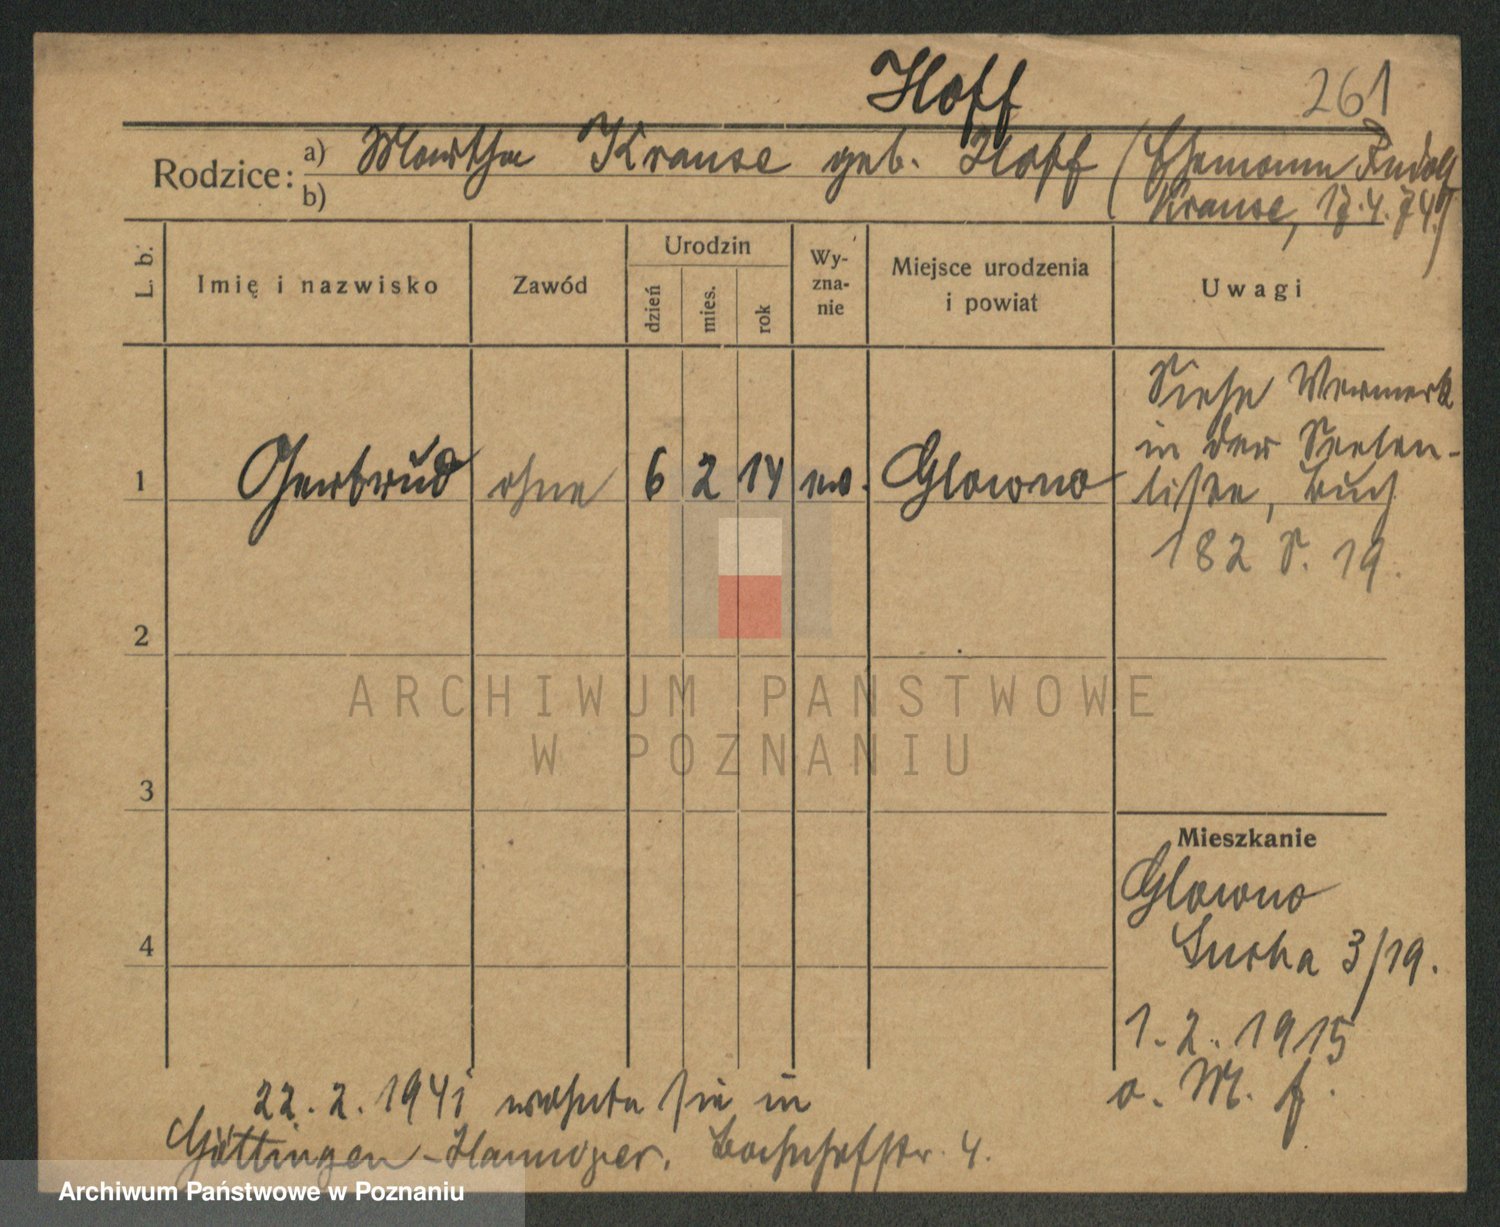 Hoff
261
Rodzice: a) Martha Krause geb. Hoff (Ehemann Rudolf
b) Krause, 17.4.74.)
L. b.
Imię i nazwisko
Zawód
Urodzin
dzień
mies.
rok
Wy-
zna-
nie
Miejsce urodzenia
i powiat
Uwagi
1 Gertrud ohne 6 2 14 ev. Glowno
Siehe Vermerk
in der Seelen-
liste, Buch
182 S. 19.
2
3
4
ARCHIWUM PAŃSTWOWE
W POZNANIU
Mieszkanie
Glowno
Sucha 3/19.
1.2.1915
o. M. f.
22.2.1941 wohnte sie in
Göttingen-Hannover, Bahnhofstr. 4.
Archiwum Państwowe w Poznaniu